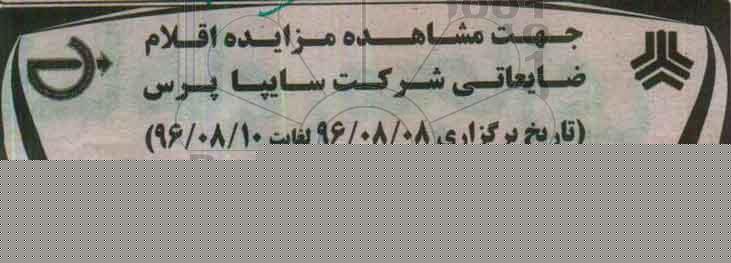 جهت مشاهده مزایده اقلام
ضایعاتی شرکت سایپا پرس
(تاریخ برگزاری ۹۶/۰۸/۰۸ لغایت ۹۶/۰۸/۱۰)